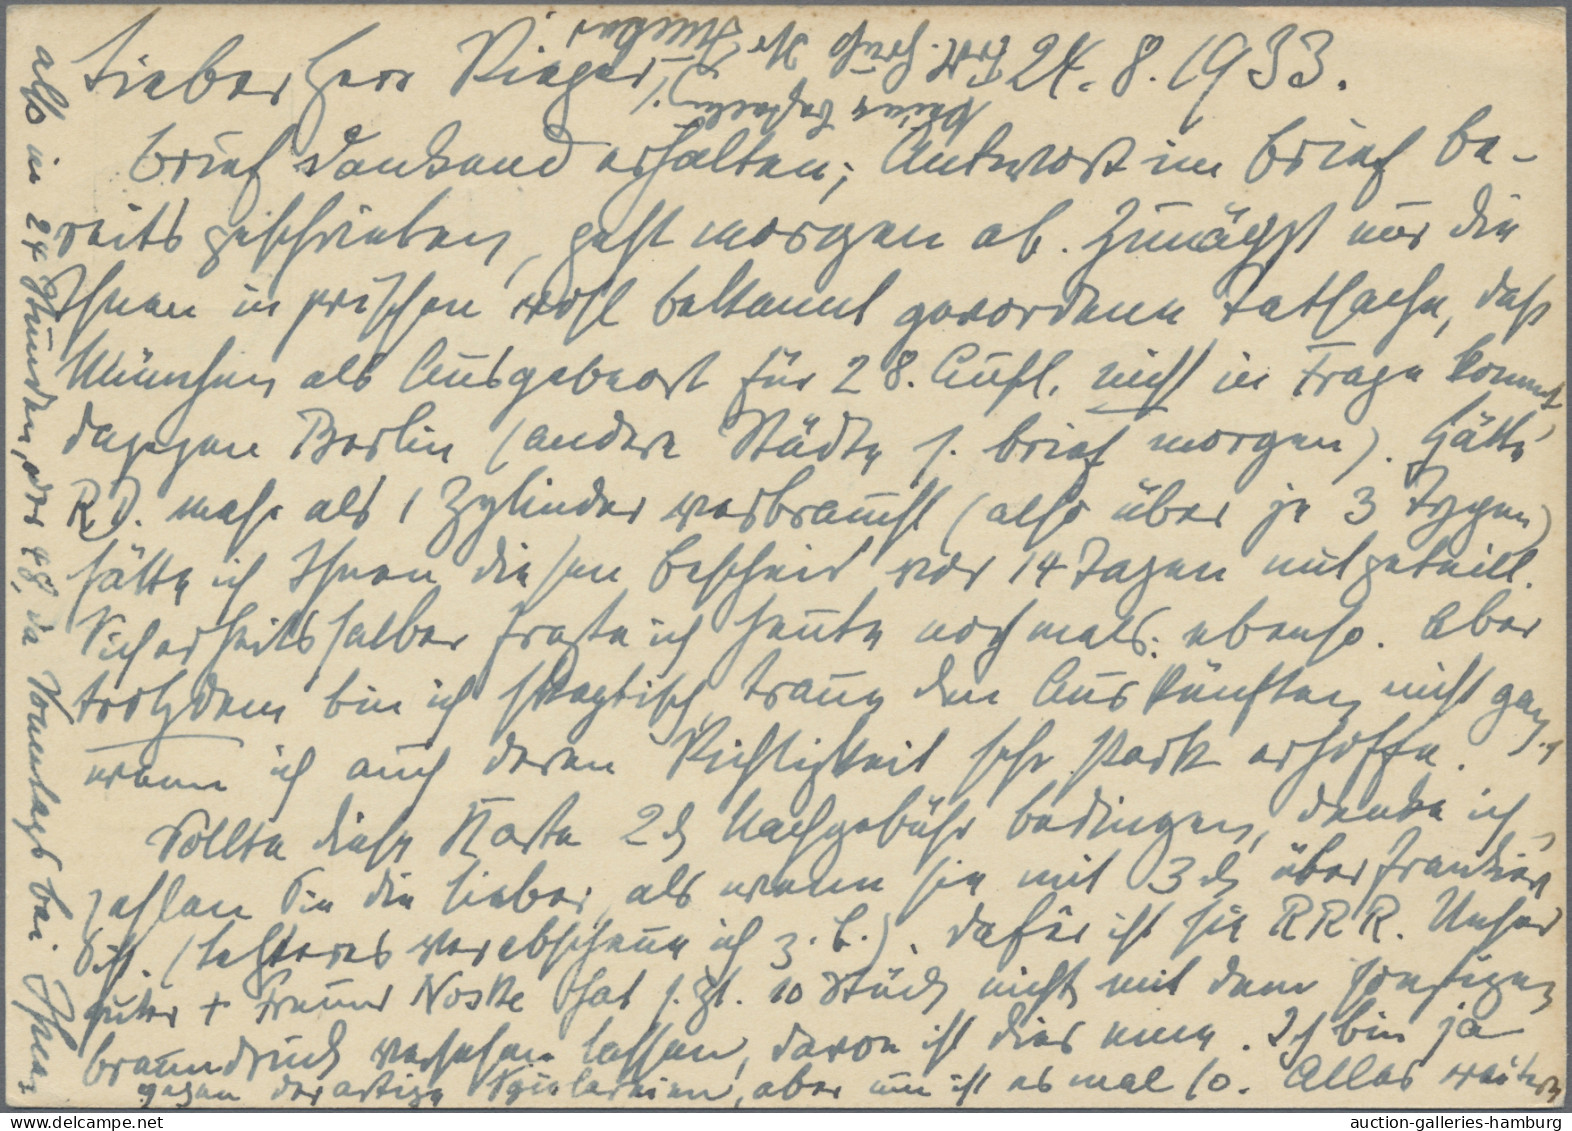 Lieber Herr Rieger, 24.8.1933.
Brief dankend erhalten; Antwort im Brief be-
reits geschrieben, geht morgen ab. Zunächst nur die
Ihnen inzwischen wohl bekannt gewordene Tatsache, daß
München als Ausgabeort für 28. Aufl. nicht in Frage kommt,
dagegen Berlin (andere Städte s. Brief morgen). Hätte
R.D. mehr als 1 Zylinder verbraucht (also über je 3 Typen)
hätte ich Ihnen diesen Bescheid vor 14 Tagen mitgeteilt.
Sicherheitshalber fragte ich heute nochmals: ebenso. Aber
trotzdem bin ich skeptisch, traue den Auskünften nicht ganz,
wenn ich auch deren Richtigkeit sehr stark erhoffe.
Sollte diese Karte 2 d Nachgebühr bedingen, denke ich,
zahlen Sie die lieber, als wenn sie mit 3 d überfrankiert
ist. (letzteres verabscheue ich z. B.). Dafür ist sie RRR. Unser
guter + Freund Noske hat s. Zt. 10 Stück nicht mit dem sonstigen
Braundruck versehen lassen, davon ist dies eine. Ich bin ja
gegen derartige Spielereien, aber nun ist es mal so. Alles weitere
also in 24 Stunden, oder 48, da Sonntags bei Ihnen
keine
Frdl. Gruß Ihr
auction-galleries-hamburg